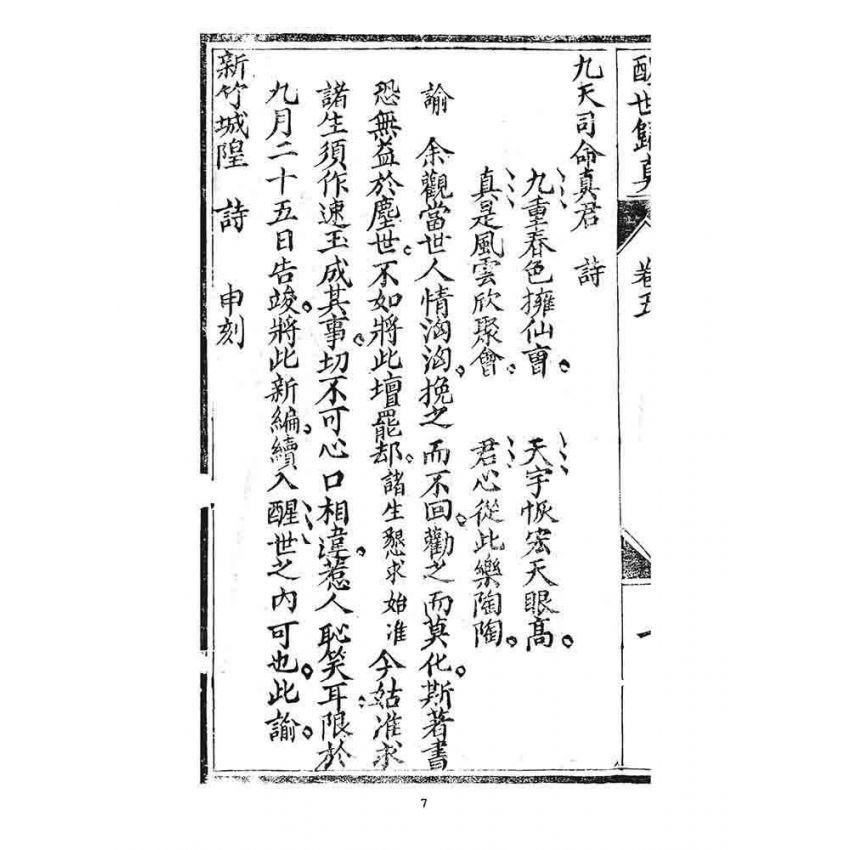 醒世歸真 卷五
九天司命真君 詩
九重春色擁仙曺。 天宇恢宏天眼高。
真是風雲欣聚會。 君心從此樂陶陶。
諭 余觀當世人情洶洶。挽之而不回。勸之而莫化。斯著書
恐無益於塵世。不如將此壇罷却。諸生懇求始准今姑准求
諸生須作速玉成其事。切不可心口相違。惹人恥笑耳。限於
九月二十五日告竣。將此新編。續入醒世之內可也。此諭。
新竹城隍 詩 申刻
7